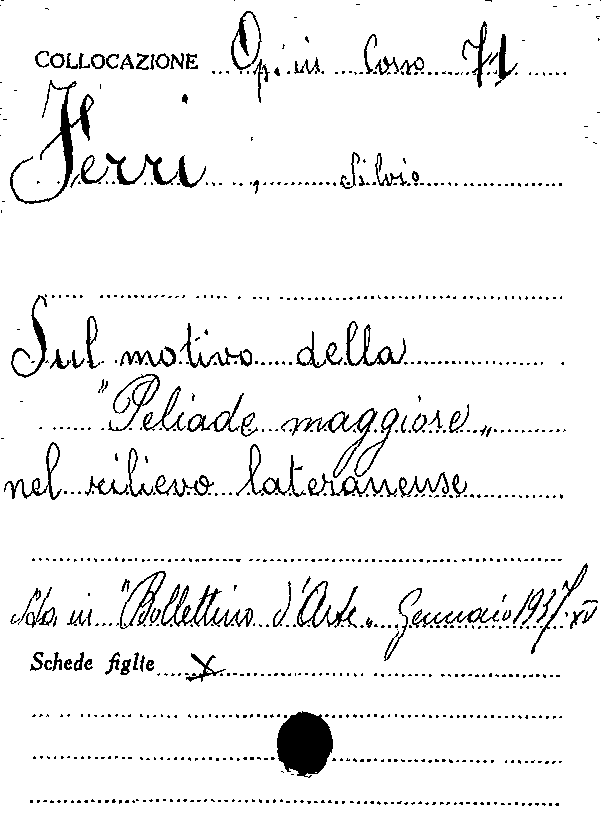 COLLOCAZIONE Op. in Corso 71
Ferri, Silvio
Sul motivo della
"Peliade maggiore"
nel rilievo lateranense
in "Bollettino d'Arte" Gennaio 1937. XV
Schede figlie X